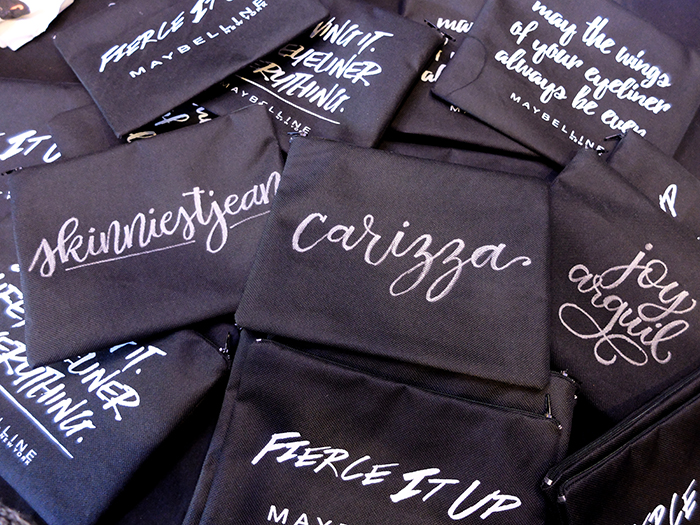 FIERCE IT UP
MAYBELLINE
EYELINER
EVERYTHING.
MAYBELLINE
may the wings
of your eyeliner
always be even
MAYBELLINE
IT UP
skinniestjean
carizza
joy
arguil
IT.
EYELINER
EVERYTHING.
MAYBELLINE
NEW YORK
FIERCE IT UP
MAYB